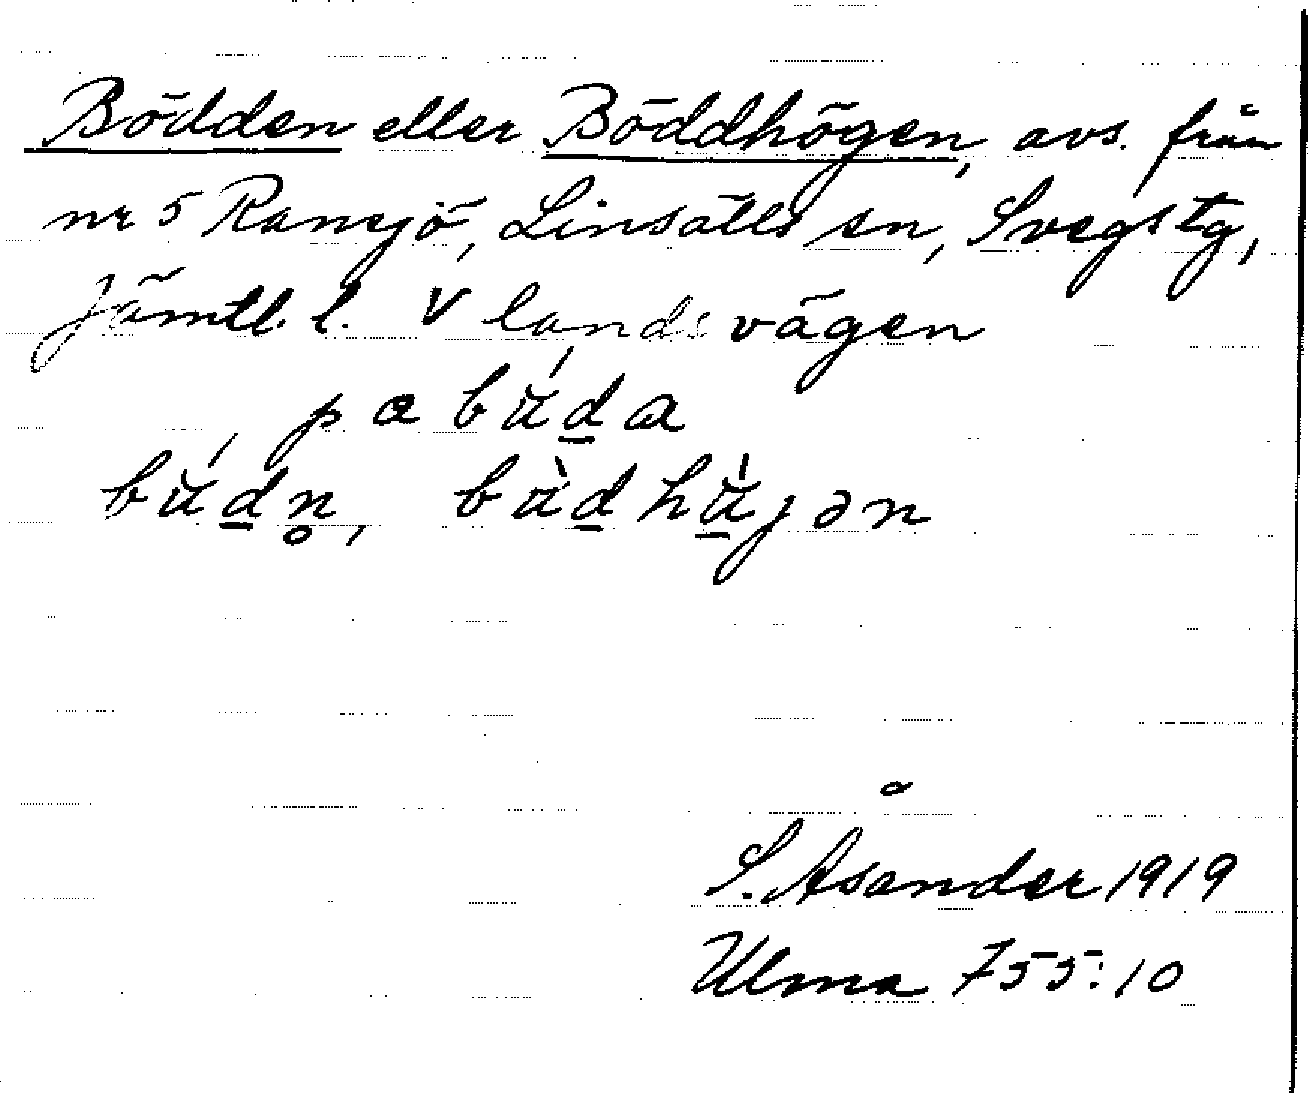 Bödden eller Böddhögen, avs. från
nr 5 Ransjö, Linsälls sn, Svegs tg,
Jämtl. l. V landsvägen
pa bu̇́d̲a
bu̇́d̲n̥, bu̇̀d̲hu̲̇̀jən
S. Åsander 1919
Ulma 755:10